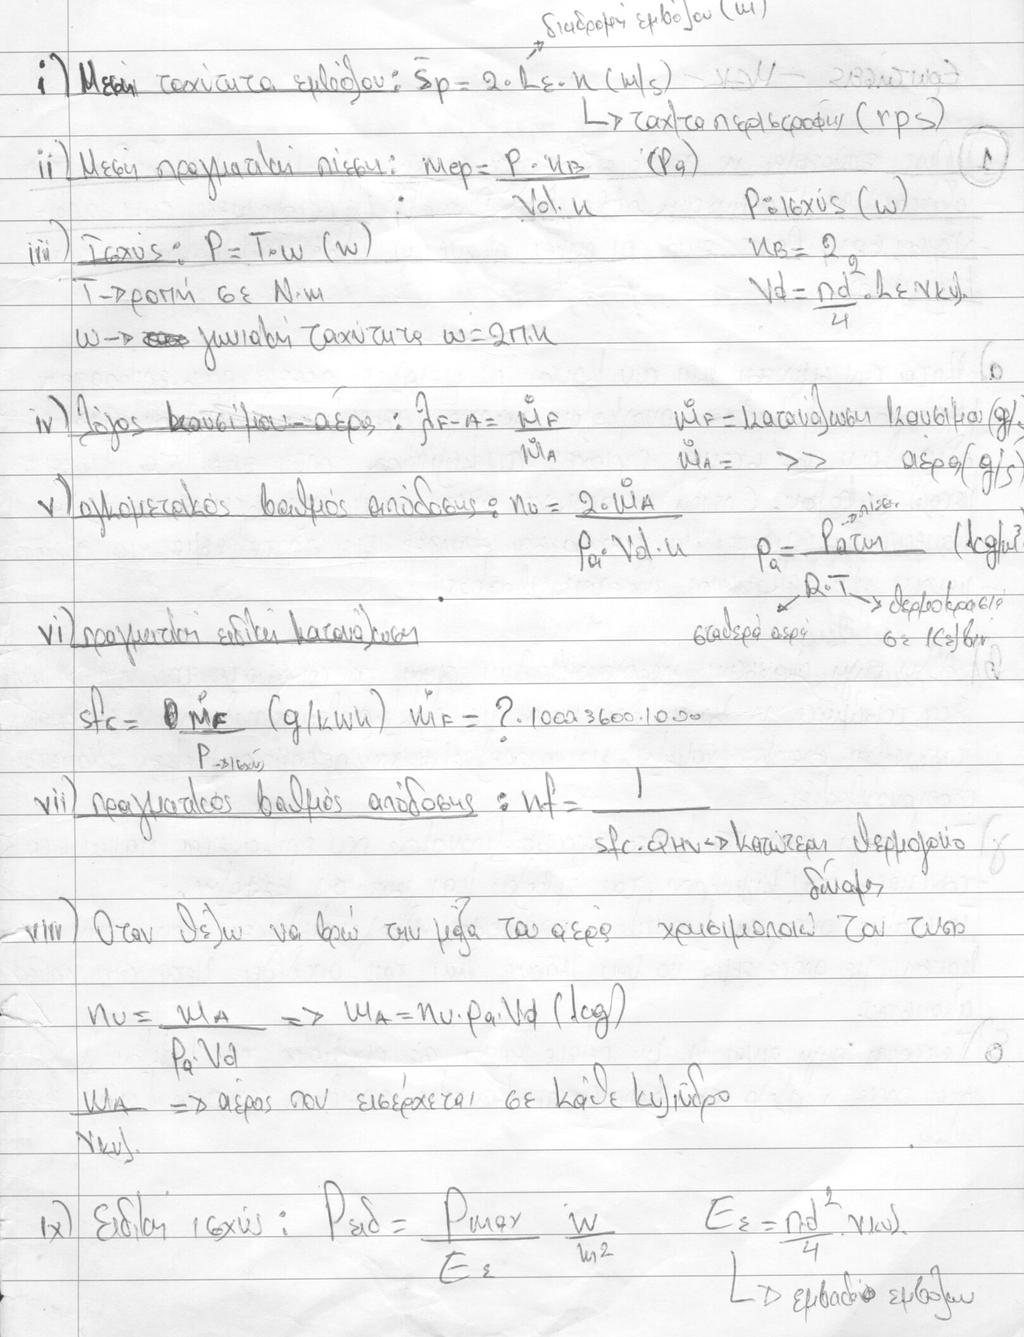 διαδρομή εμβόλου (m)
i) Μεση ταχύτητα εμβόλου: S̄p = 2·Lε·n (m/s)
↳ ταχ/τα περιστροφης (rps)
ii) Μεση πραγματική πίεση: mep = P·nB / Vd·n (Pa)
P: ισχύς (w)
iii) Ισχύς: P = T·ω (w)
nB = 2
T → ροπή σε N·m
Vd = πd²/4 · Lε νκυλ.
ω → γωνιακή ταχύτητα ω = 2π.n
iv) Λόγος καυσίμου-αέρα: λF-A = ṁF / ṁA
ṁF = κατανάλωση καυσίμου (g/s
ṁA = >> αέρα (g/s)
v) ογκομετρικός βαθμός απόδοσης: nv = 2·ṁA / ρa·Vd·n
ρa = Pατμ / R·T (kg/m³
→ πίεση
σταθερά αερα
→ θερμοκρασία σε Kελβιν
vi) πραγματική ειδική κατανάλωση
sfc = ṁF / P (g/kWh) ṁF = ?·100·3600·1000
→ ισχύς
vii) πραγματικός βαθμός απόδοσης: nf = 1 / sfc·QHV → κατώτερη θερμογόνο
δύναμης
viii) Οταν θέλω να βρω την μάζα του αέρα χρησιμοποιώ τον τυπο
nv = mA / ρa·Vd => mA = nv·ρa·Vd (kg)
mA / νκυλ. => αέρας που εισέρχεται σε κάθε κύλινδρο
ix) Ειδική ισχύς: Pειδ = Pmax / Eε w/m²
Eε = πd²/4 · νκυλ.
↳ εμβαδό εμβόλου